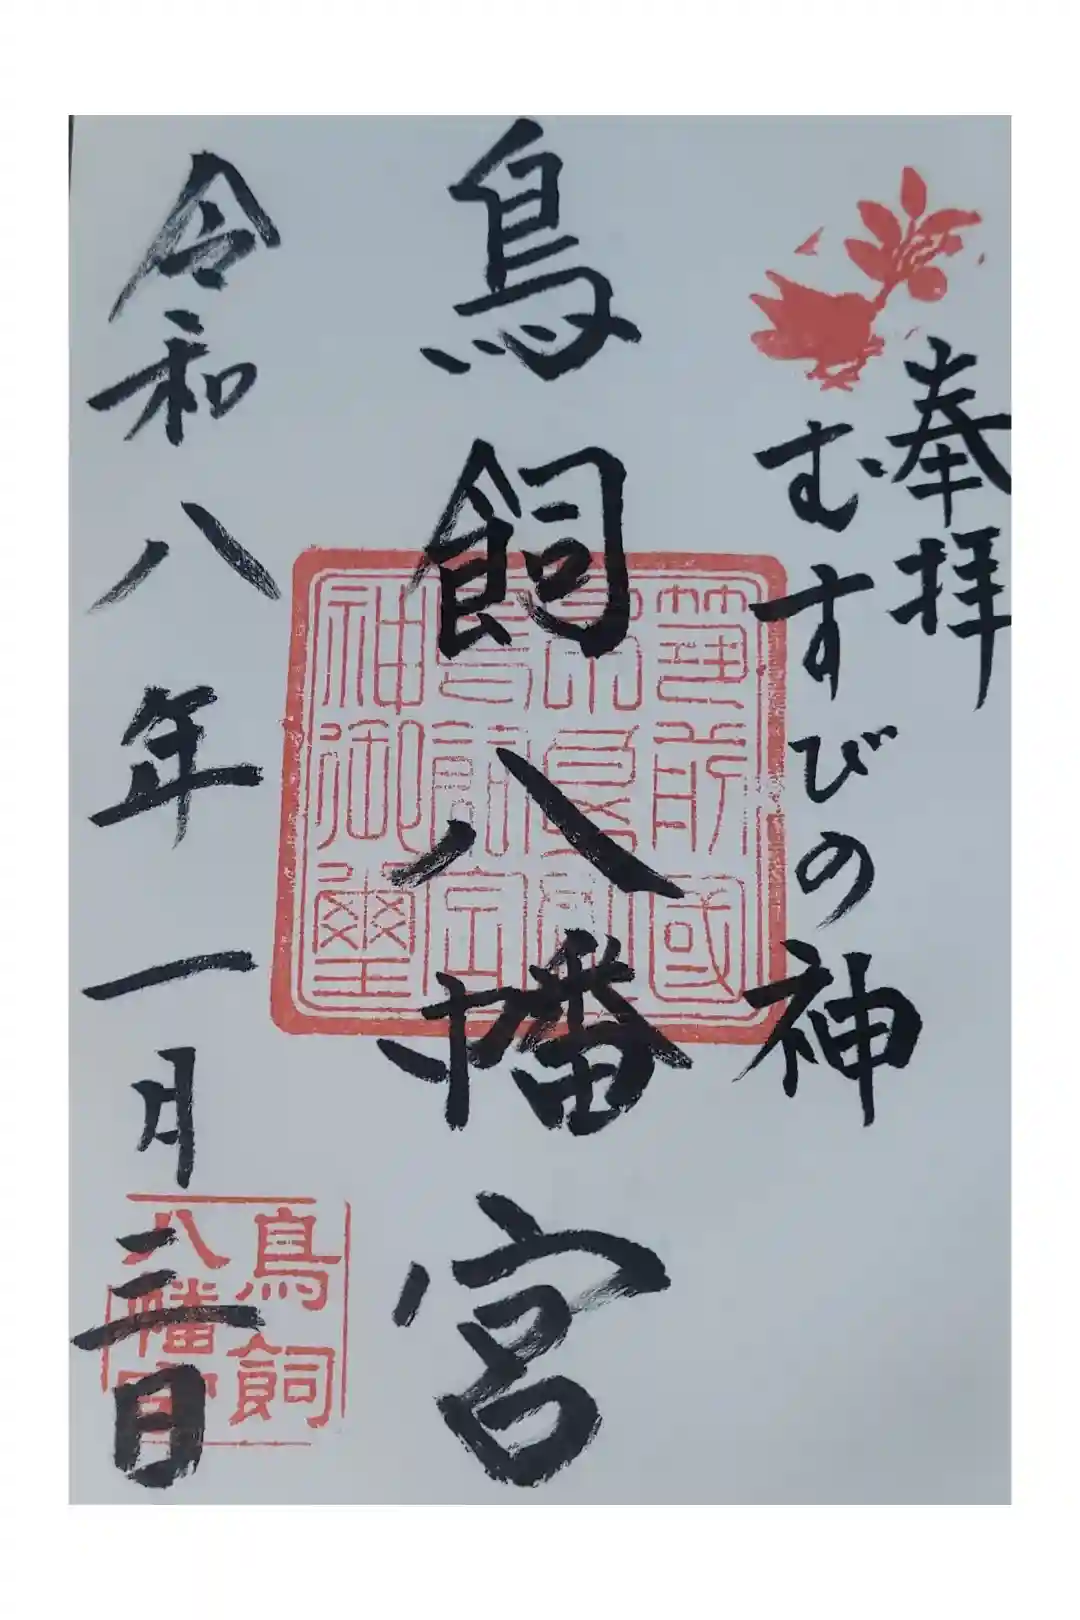 奉拝
むすびの神
鳥飼八幡宮
筑前國
鳥飼宮
神御璽
令和八年一月三日
鳥飼
八幡宮